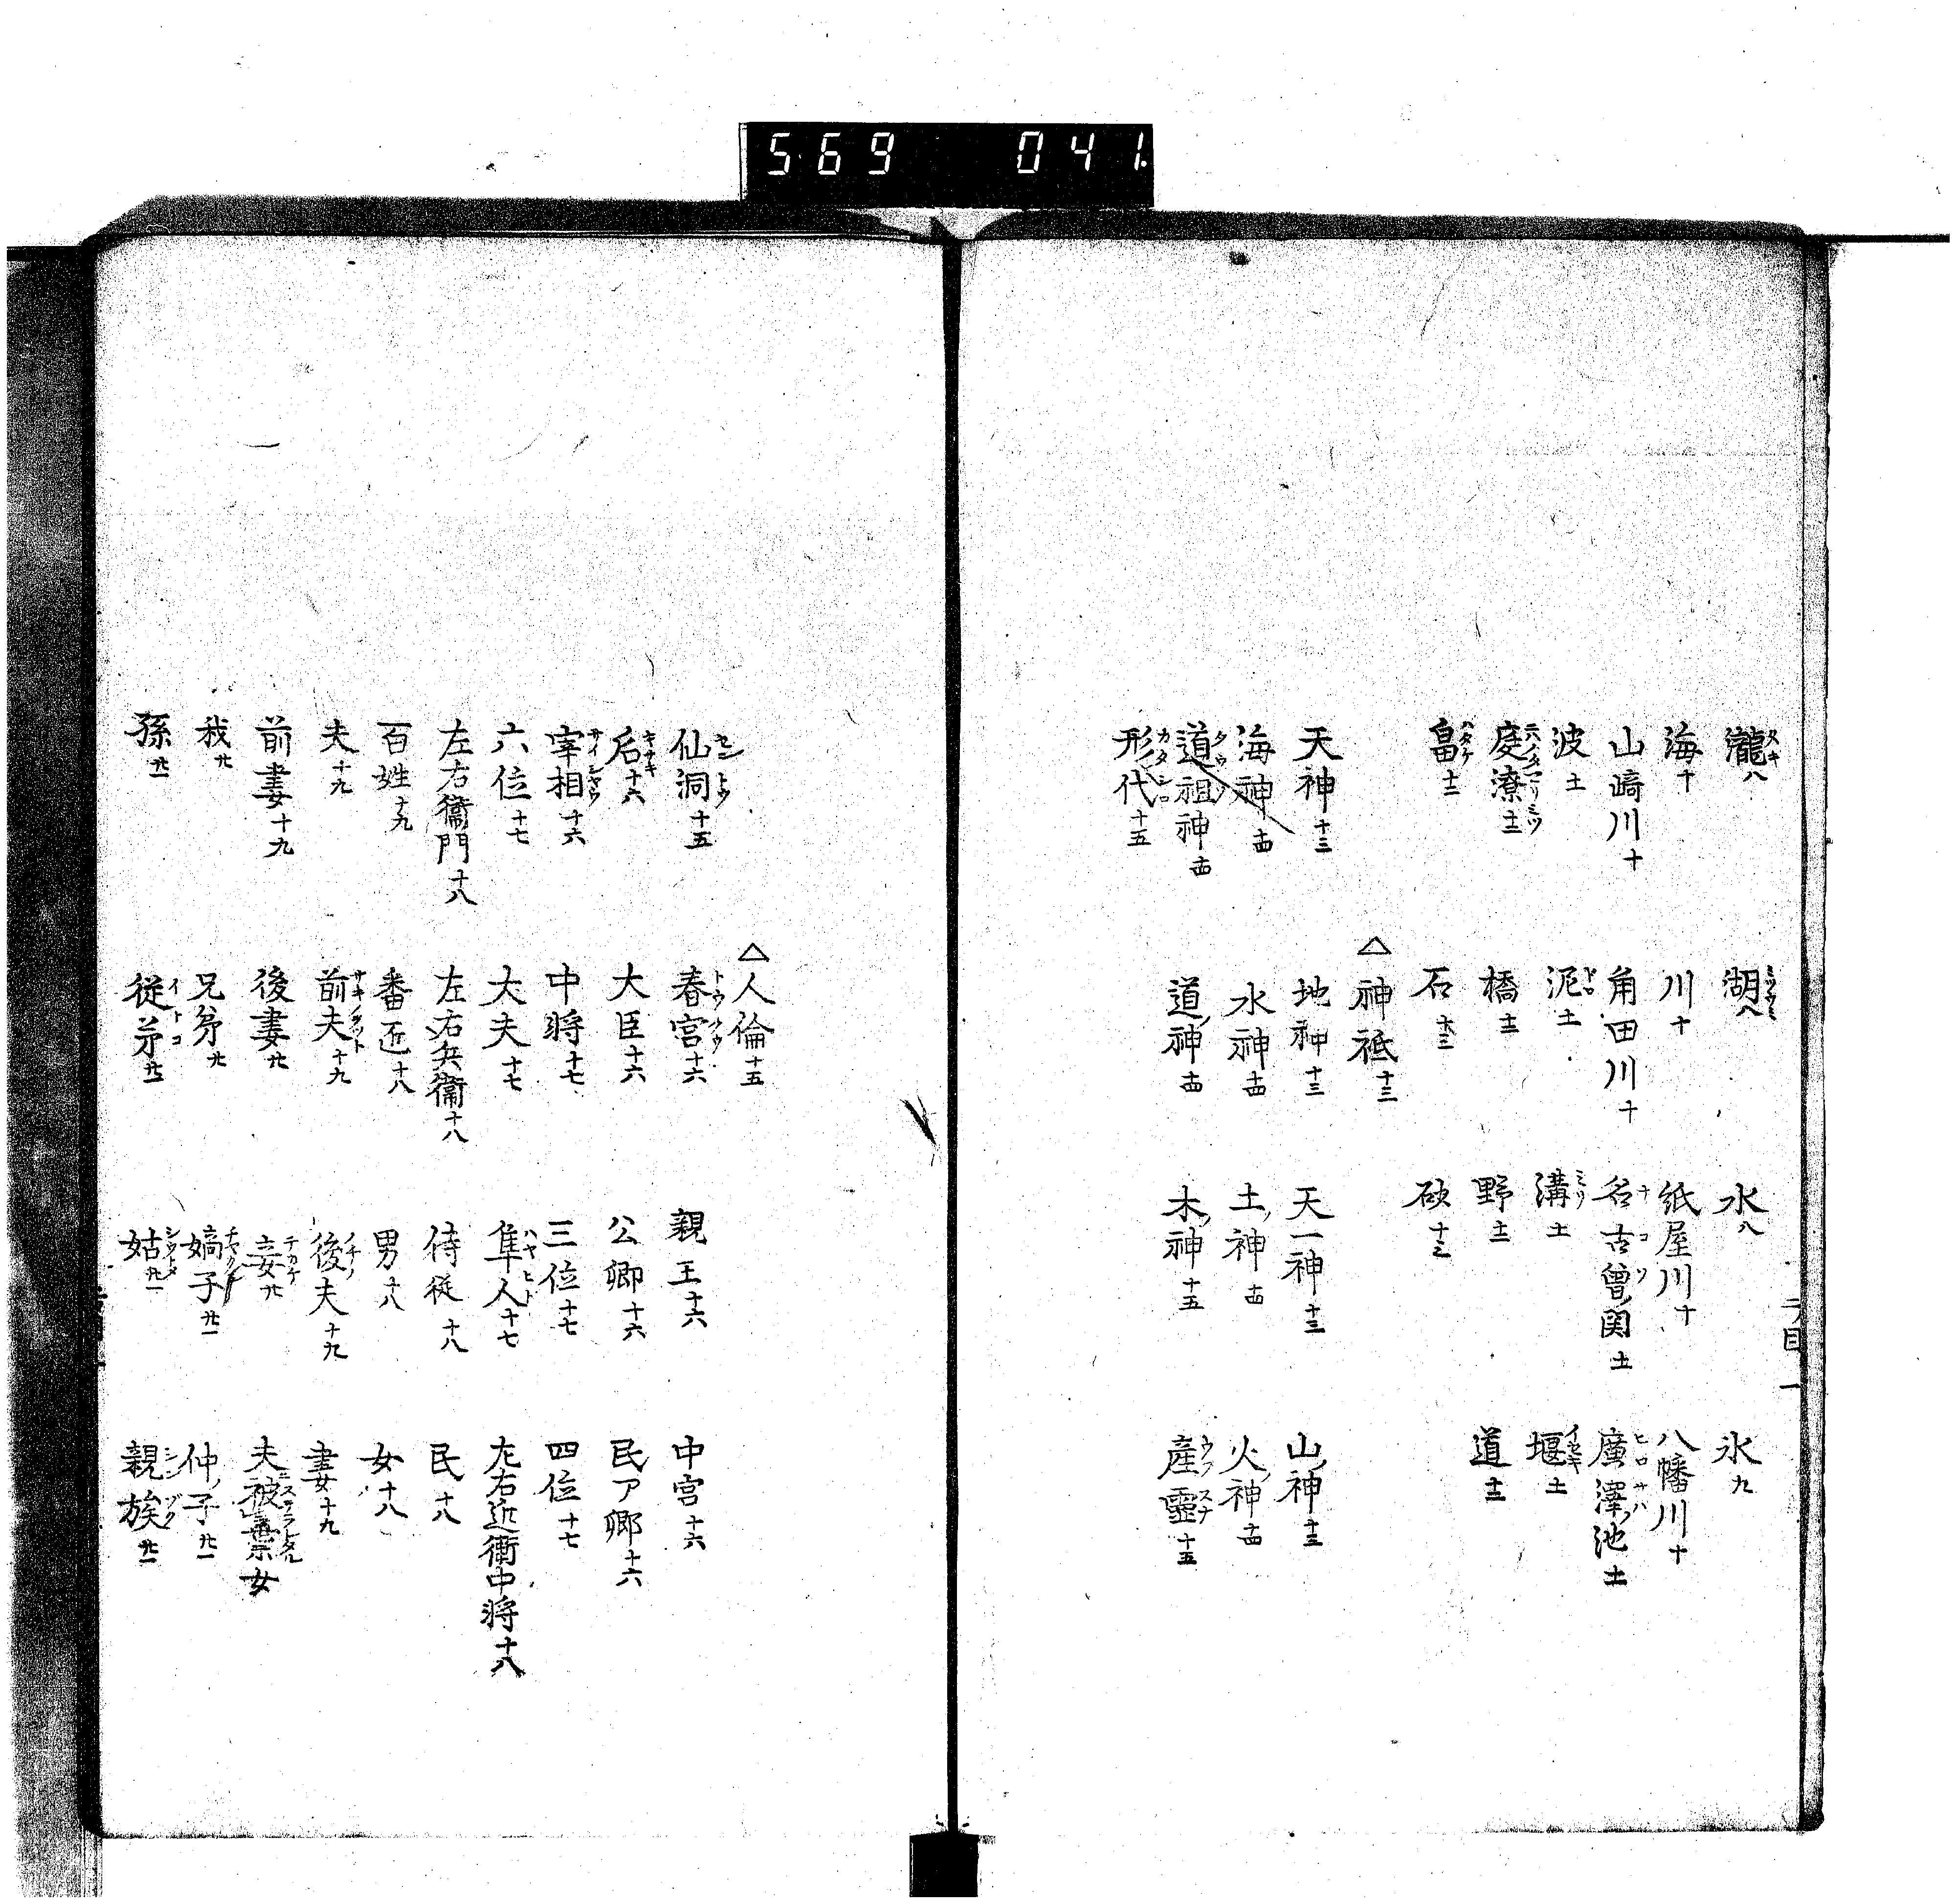 569 041
瀧八 湖八 水八 氷九
海十 川十 紙屋川十 八幡川十
山﨑川十 角田川十 名古曾ノ関十一 廣澤ノ池十一
波十一 泥十一 溝十一 堰十一
庭潦十二 橋十二 野十二 道十二
畠十二 石十三 砍十三
△神祗十三
天神十三 地神十三 天一神十三 山神十三
海神十四 水神十四 土ノ神十四 火ノ神十四
道祖神十四 道ノ神十四 木ノ神十五 産霊十五
形代十五
二ノ目 一
△人倫十五
仙洞十五 春宮十六 親王十六 中宮十六
后十六 大臣十六 公卿十六 民ア卿十六
宰相十六 中将十七 三位十七 四位十七
六位十七 大夫十七 隼人十七 左右近衛中将十八
左右衛門十八 左右兵衛十八 侍従十八 民十八
百姓十九 番匠十八 男十八 女十八
夫十九 前夫十九 後夫十九 妻十九
前妻十九 後妻廿 妾廿 夫被棄女
我廿 兄弟廿 嫡子廿一 仲ノ子廿一
孫廿一 従弟廿一 姑廿一 親族廿一